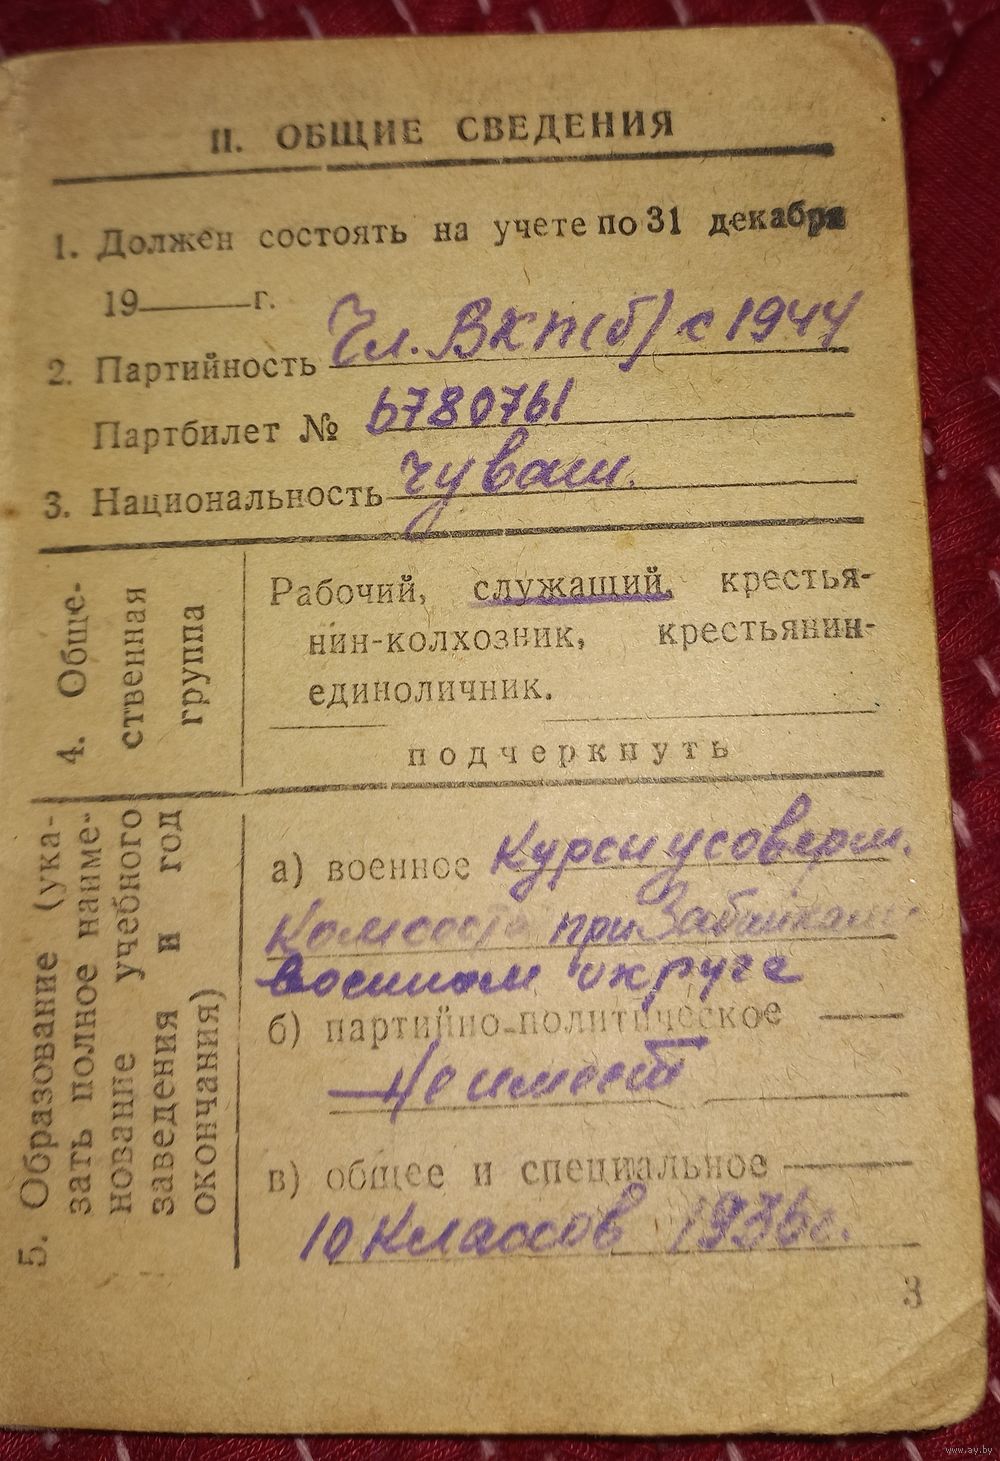 II. ОБЩИЕ СВЕДЕНИЯ
1. Должен состоять на учете по 31 декабря
19 г.
2. Партийность Чл. ВКП(б) с 1944
Партбилет № 6780761
3. Национальность чуваш.
4. Обще-
ственная
группа
Рабочий, служащий, крестья-
нин-колхозник, крестьянин-
единоличник.
подчеркнуть
5. Образование (ука-
зать полное наиме-
нование учебного
заведения и год
окончания)
а) военное Курсы усоверш.
комсост при Забайкал
военном округе
б) партийно-политическое
Не имеет
в) общее и специальное
10 классов 1936 г.
3
www.ay.by